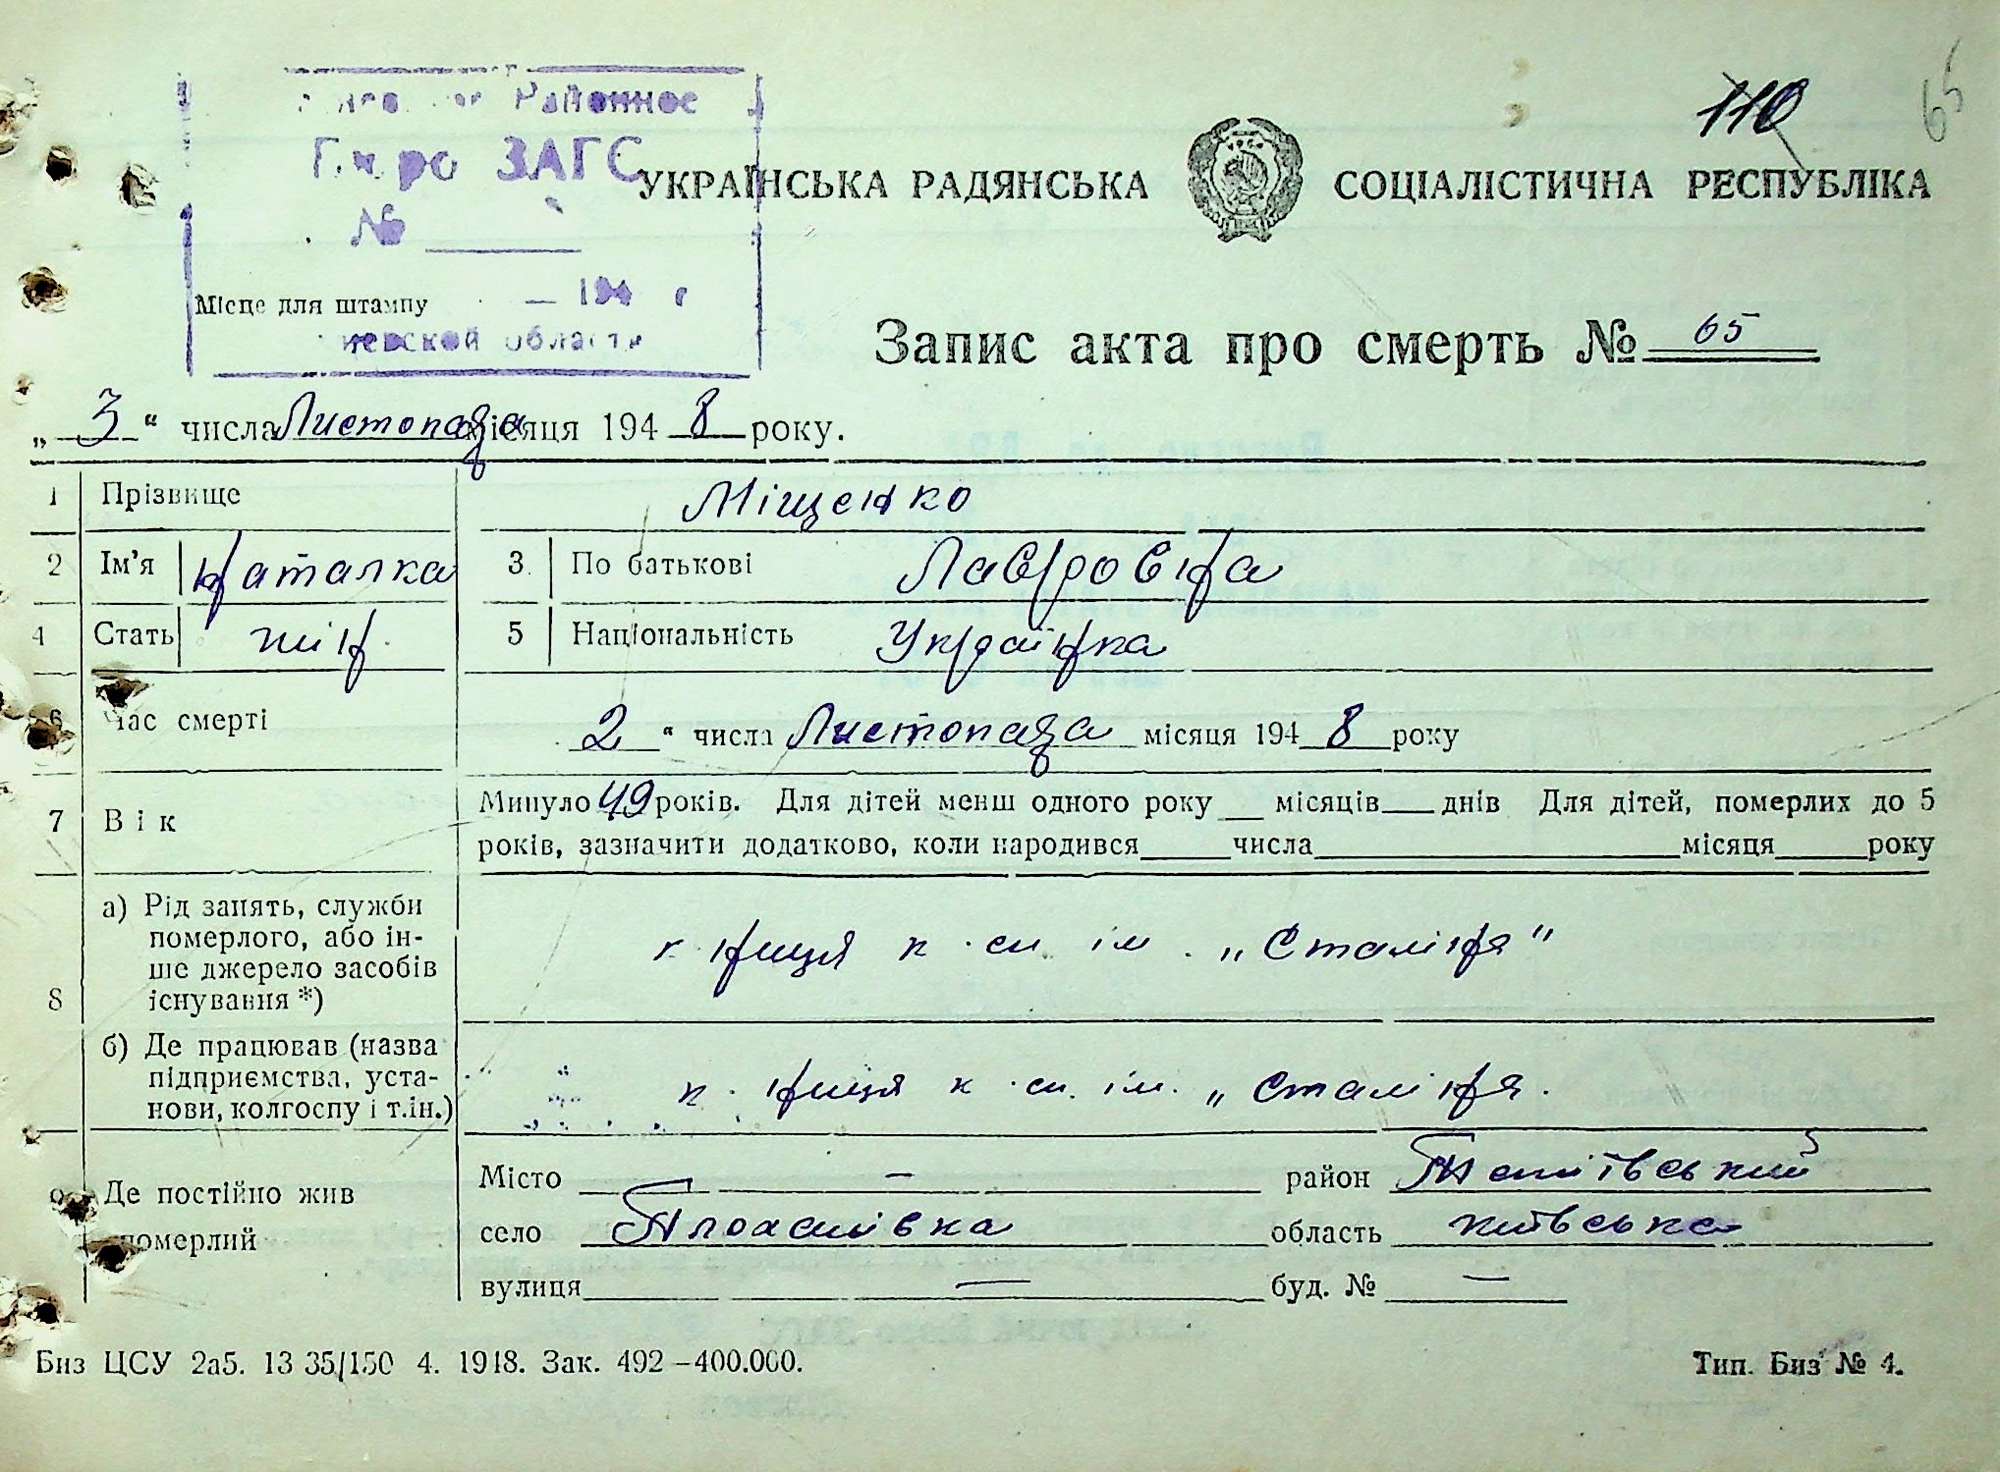 Районное
Бюро ЗАГС
№
Місце для штампу
194 г
области
110
65
УКРАЇНСЬКА РАДЯНСЬКА СОЦІАЛІСТИЧНА РЕСПУБЛІКА
Запис акта про смерть № 65
„ 3 “ числа Листопада місяця 194 8 року.
1 Прізвище Міщенко
2 Ім'я Наталка 3 По батькові Лавровна
4 Стать жін. 5 Національність Українка
6 Час смерті 2 “ числа Листопада місяця 194 8 року
7 Вік Минуло 49 років. Для дітей менш одного року місяців днів Для дітей, померлих до 5
років, зазначити додатково, коли народився числа місяця року
8 а) Рід занять, служби
померлого, або ін-
ше джерело засобів
існування *)
к·ниця к·сп. ім. „Сталіня"
б) Де працював (назва
підприємства, уста-
нови, колгоспу і т.ін.)
к·ниця к·сп. ім. „Сталіня.
9 Де постійно жив
померлий
Місто — район
село область Київська
вулиця — буд. № —
Биз ЦСУ 2а5. 13 35/150 4. 1948. Зак. 492–400.000.
Тип. Биз № 4.